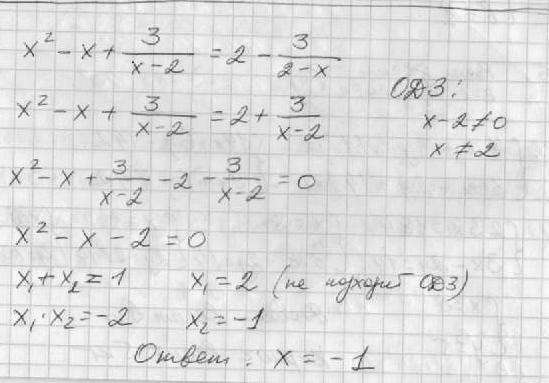 x² - x + 3/(x-2) = 2 - 3/(2-x)
ОДЗ:
x² - x + 3/(x-2) = 2 + 3/(x-2)
x-2≠0
x≠2
x² - x + 3/(x-2) - 2 - 3/(x-2) = 0
x² - x - 2 = 0
x₁ + x₂ = 1 x₁ = 2 (не подходит ОДЗ)
x₁ · x₂ = -2 x₂ = -1
Ответ: x = -1